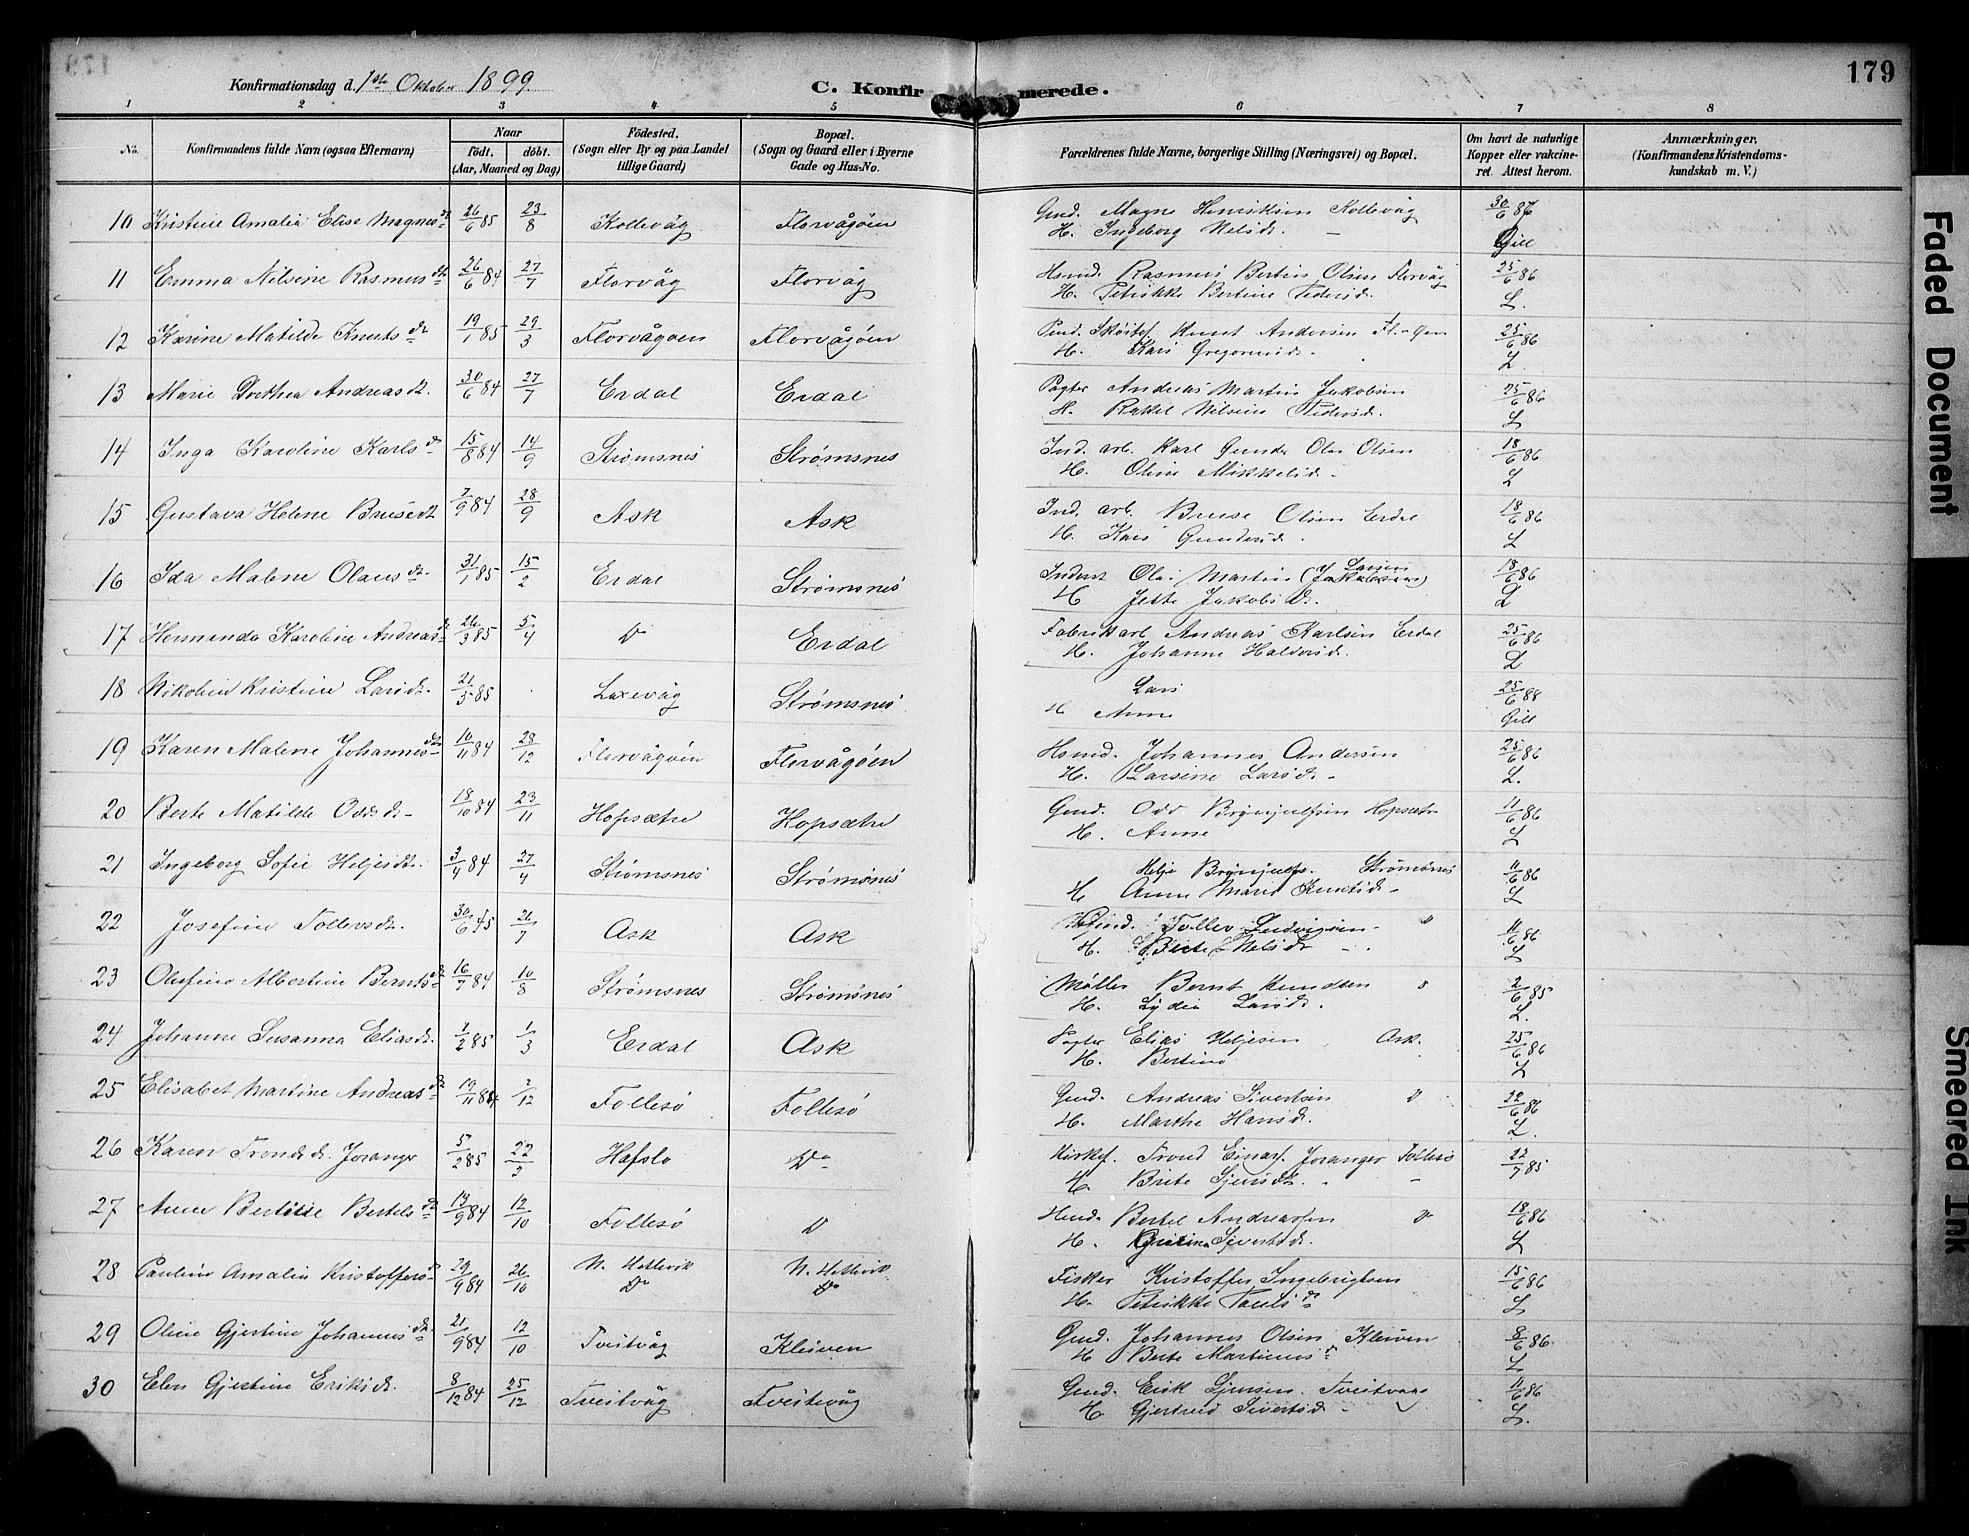 179
Konfirmationsdag d. 1ste Oktober 1899.
C. Konfirmerede.
1 2 3 4 5 6 7 8
No. Konfirmandens fulde Navn (ogsaa Efternavn) Naar født. døbt. (Aar, Maaned og Dag) Fødested. (Sogn eller By og paa Landet tillige Gaard) Bopæl. (Sogn og Gaard eller i Byerne Gade og Hus-No. Forældrenes fulde Navne, borgerlige Stilling (Næringsvei) og Bopæl. Om havt de naturlige Kopper eller vakcineret. Attest herom. Anmærkninger, (Konfirmandens Kristendomskundskab m. V.)
10 Kristine Amalia Elise Magnesdt 26/6 85 23/8 Kollevåg Florvågöen Gmd. Magne Henriksen Kollevåg 30/6 87
H. Ingeborg Nelsd. — Gill
11 Emma Nilsine Rasmusdt 26/6 84 27/7 Florvåg Florvåg Hsmd. Rasmus Bertin Olsen Florvåg 25/6 86
H. Petrikke Bertine Pedersd. L.
12 Karine Matilde Knutsdt 19/1 85 29/3 Florvågöen Florvågöen Knut Andersen 25/6 86
H. Kari Gregoriusd. L.
13 Marie Dorthea Andreasdt. 30/6 84 27/7 Erdal Erdal Pagter Andreas Martin Jakobsen 25/6 86
H. Rakel Nilsine Pedersd. L
14 Inga Karoline Karlsdt 15/8 84 14/9 Strømsnes Strømsnes Ind. arb. Karl Gunda Olai Olsen 18/6 86
H. Oline Mikkelsd. L
15 Gustava Helene Brusedt 7/9 84 28/9 Ask Ask Ind. arb. Bruse Olsen Erdal 18/6 86
H. Kari Gundersd. L
16 Ida Malene Olausdt. 31/1 85 15/2 Erdal Strømsnes Inderst Olai Martin (Jakobsen) Larsen 18/6 86
H Jette Jakobsd. L
17 Hermanda Karoline Andreasdt 26/3 85 5/4 Do Erdal Fabrikarb. Andreas Karlsen Erdal 25/6 86
H. Johanne Haldorsd. L
18 Nikoline Kristine Larsdt. 21/5 85 Laxevåg Strømsnes Lars 25/6 88
H Anne Gill
19 Karen Malene Johannesdt 10/11 84 28/12 Florvågöen Florvågöen Hsmd. Johannes Andersen 25/6 86
H. Larsine Larsd. L.
20 Berte Matilde Oddsdt 18/10 84 23/11 Hopsætre Hopsætre Gmd. Odd Brynjulfsen Hopsætre 11/6 86
H. Anne L
21 Ingeborg Sofie Heljesdt. 3/4 84 27/4 Strømsnes Strømsnes Helje Brynjulfs. Strømsnes 11/6 86
H Anne Marie Knutsd. L
22 Josefine Tollevsdt. 30/6 45 26/7 Ask Ask Tollev Ludvigsen 11/6 86
H. Berte Nelsdt L
23 Olufine Albertine Berntsdt 16/7 84 10/8 Strømsnes Strømsnes Møller Bernt Knudsen 2/6 85
H. Lydia Larsd. L.
24 Johanne Susanna Eliasdt. 1/2 85 1/3 Erdal Ask Pagter Elias Heljesen Ask. 25/6 86
H. Bertine L
25 Elisabet Martine Andreasdt 19/11 84 2/12 Follesø Follesø Gmd. Andreas Sivertsen Do 22/6 86
H. Marthe Hansd. L.
26 Karen Trondsdt. Joranger 5/2 85 22/2 Hafslo Do Kirkef. Trond Einars. Joranger Follesø 22/7 85
H. Brite Sjursdt.
27 Anne Bertine Bertelsdt 13/9 84 12/10 Follesø Do Bertel Andreassen Do 18/6 86
H. Sivertsd. L
28 Pauline Amalia Kristoffersdt 29/9 84 26/10 N. Hettevik Do N. Hettevik Do Fisker Kristoffer Ingebrigtsen 15/6 86
H. Petrikke Paulsdt L
29 Oline Gjertine Johannesdt. 21/9 84 12/10 Tveitvåg Kleiven Gmd. Johannes Olsen Kleiven 8/6 86
H Berte Martinusdt L
30 Elen Gjertine Eriksdt. 8/12 84 25/12 Tveitvåg Tveitevåg Gmd. Erik Sjursen Tveitvaag 11/6 86
H Gjertrud Sivertsd. L.
Faded Document
Smeared Ink